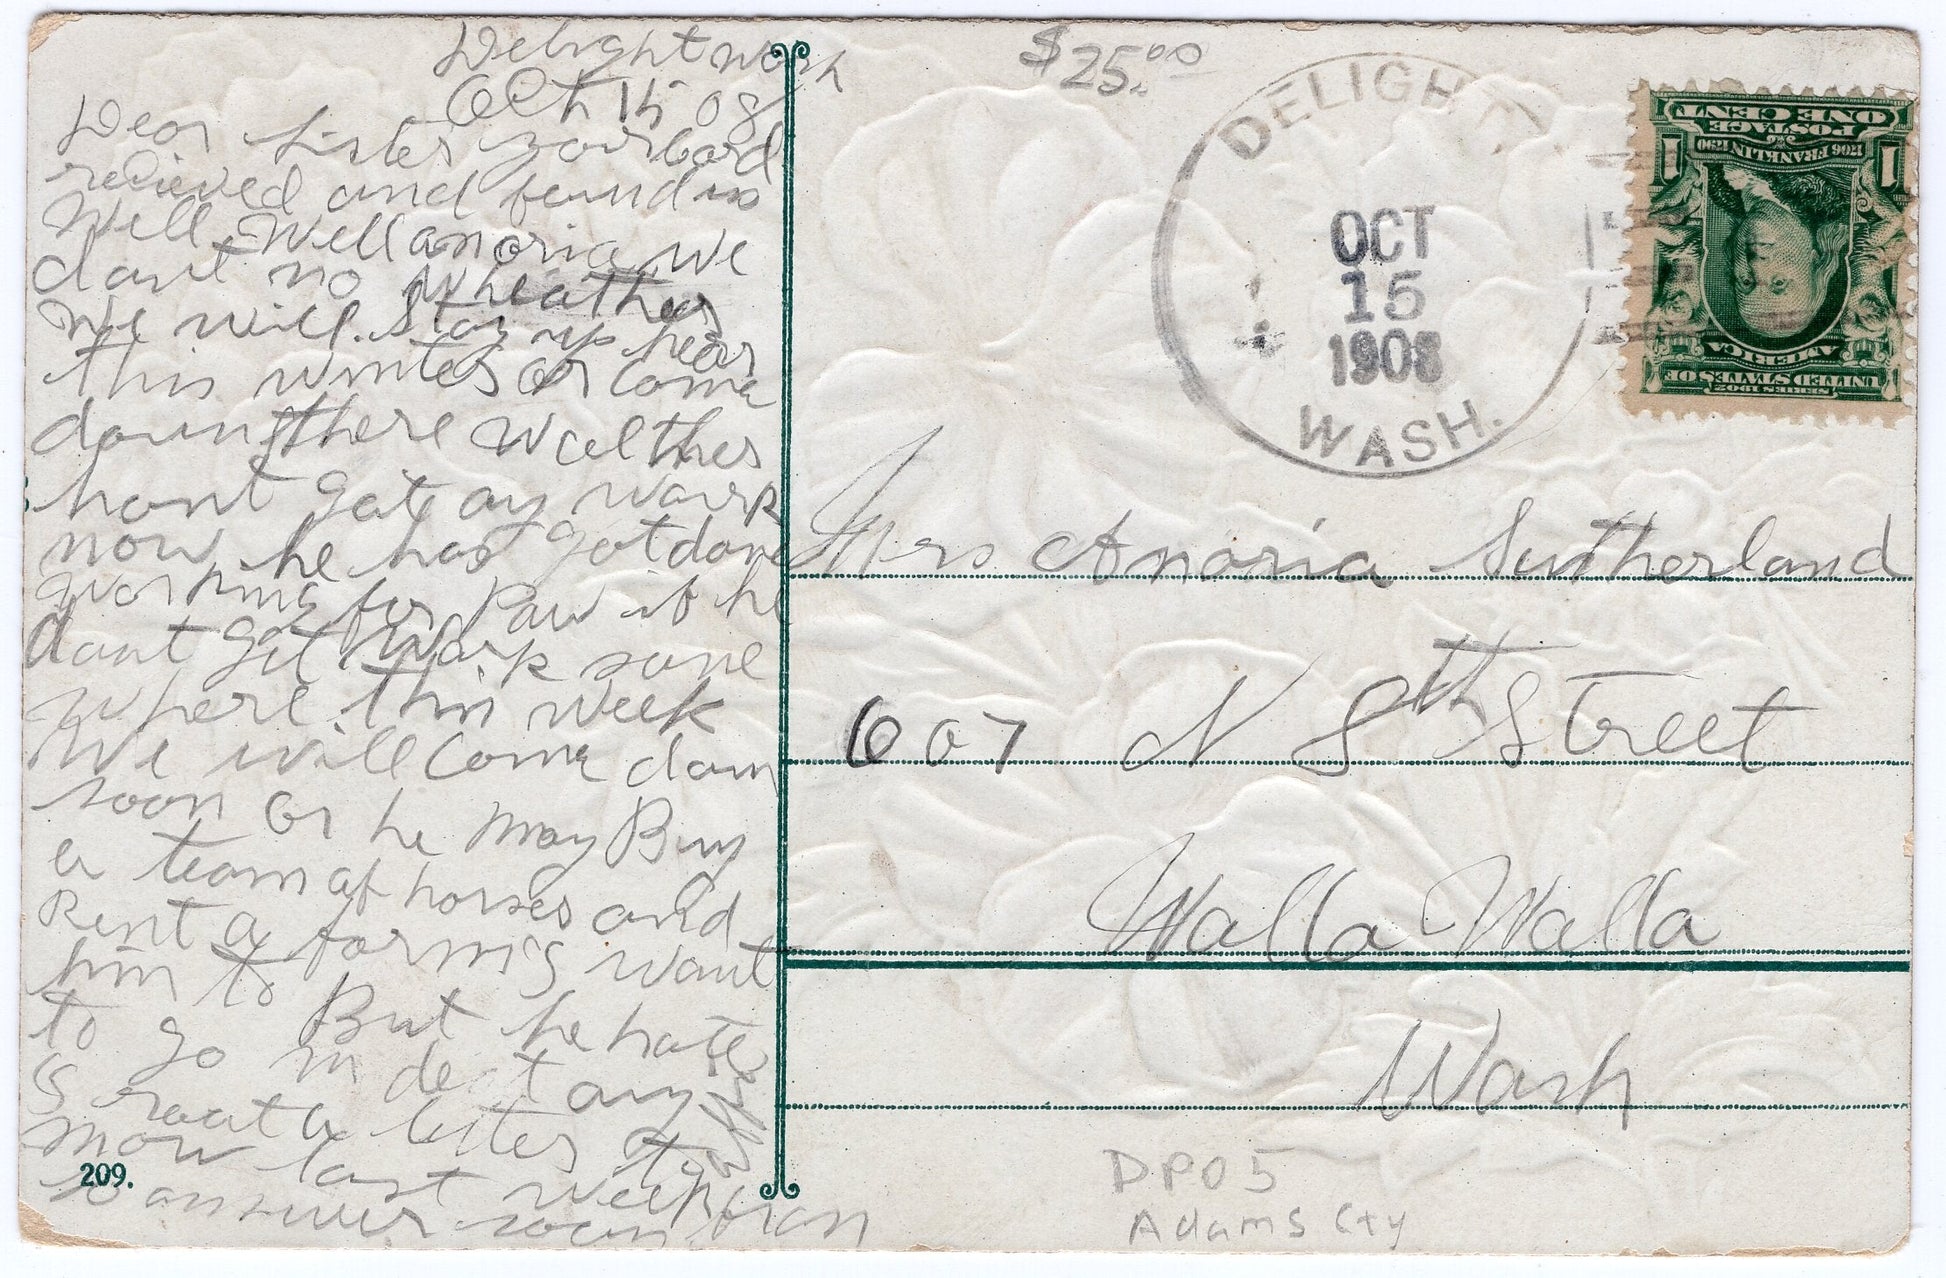 Delight Wash
Oct 15 08
Dear Sister your card
recieved and found us
Well. Well anoria We
dont no Wheather
We will. Stay up hear
this winter or come
down there Walther
hant got any work
now he has got done
working for Paw if he
dont get Work some
where this week
We will come down
soon or he may Buy
a team of horses and
Rent a farm I want
him to
to go But he hate
in det any
I roat a letter to
mow last week
to answer soon
209.
$25.00
DELIGHT
OCT
15
1908
WASH.
ONE CENT
POSTAGE
1706 FRANKLIN 1790
1 1
AMERICA
UNITED STATES OF
SERIES 1902
Mrs Anoria Sutherland
607 N 8th Street
Walla Walla
Wash
DPO 5
Adams Cty